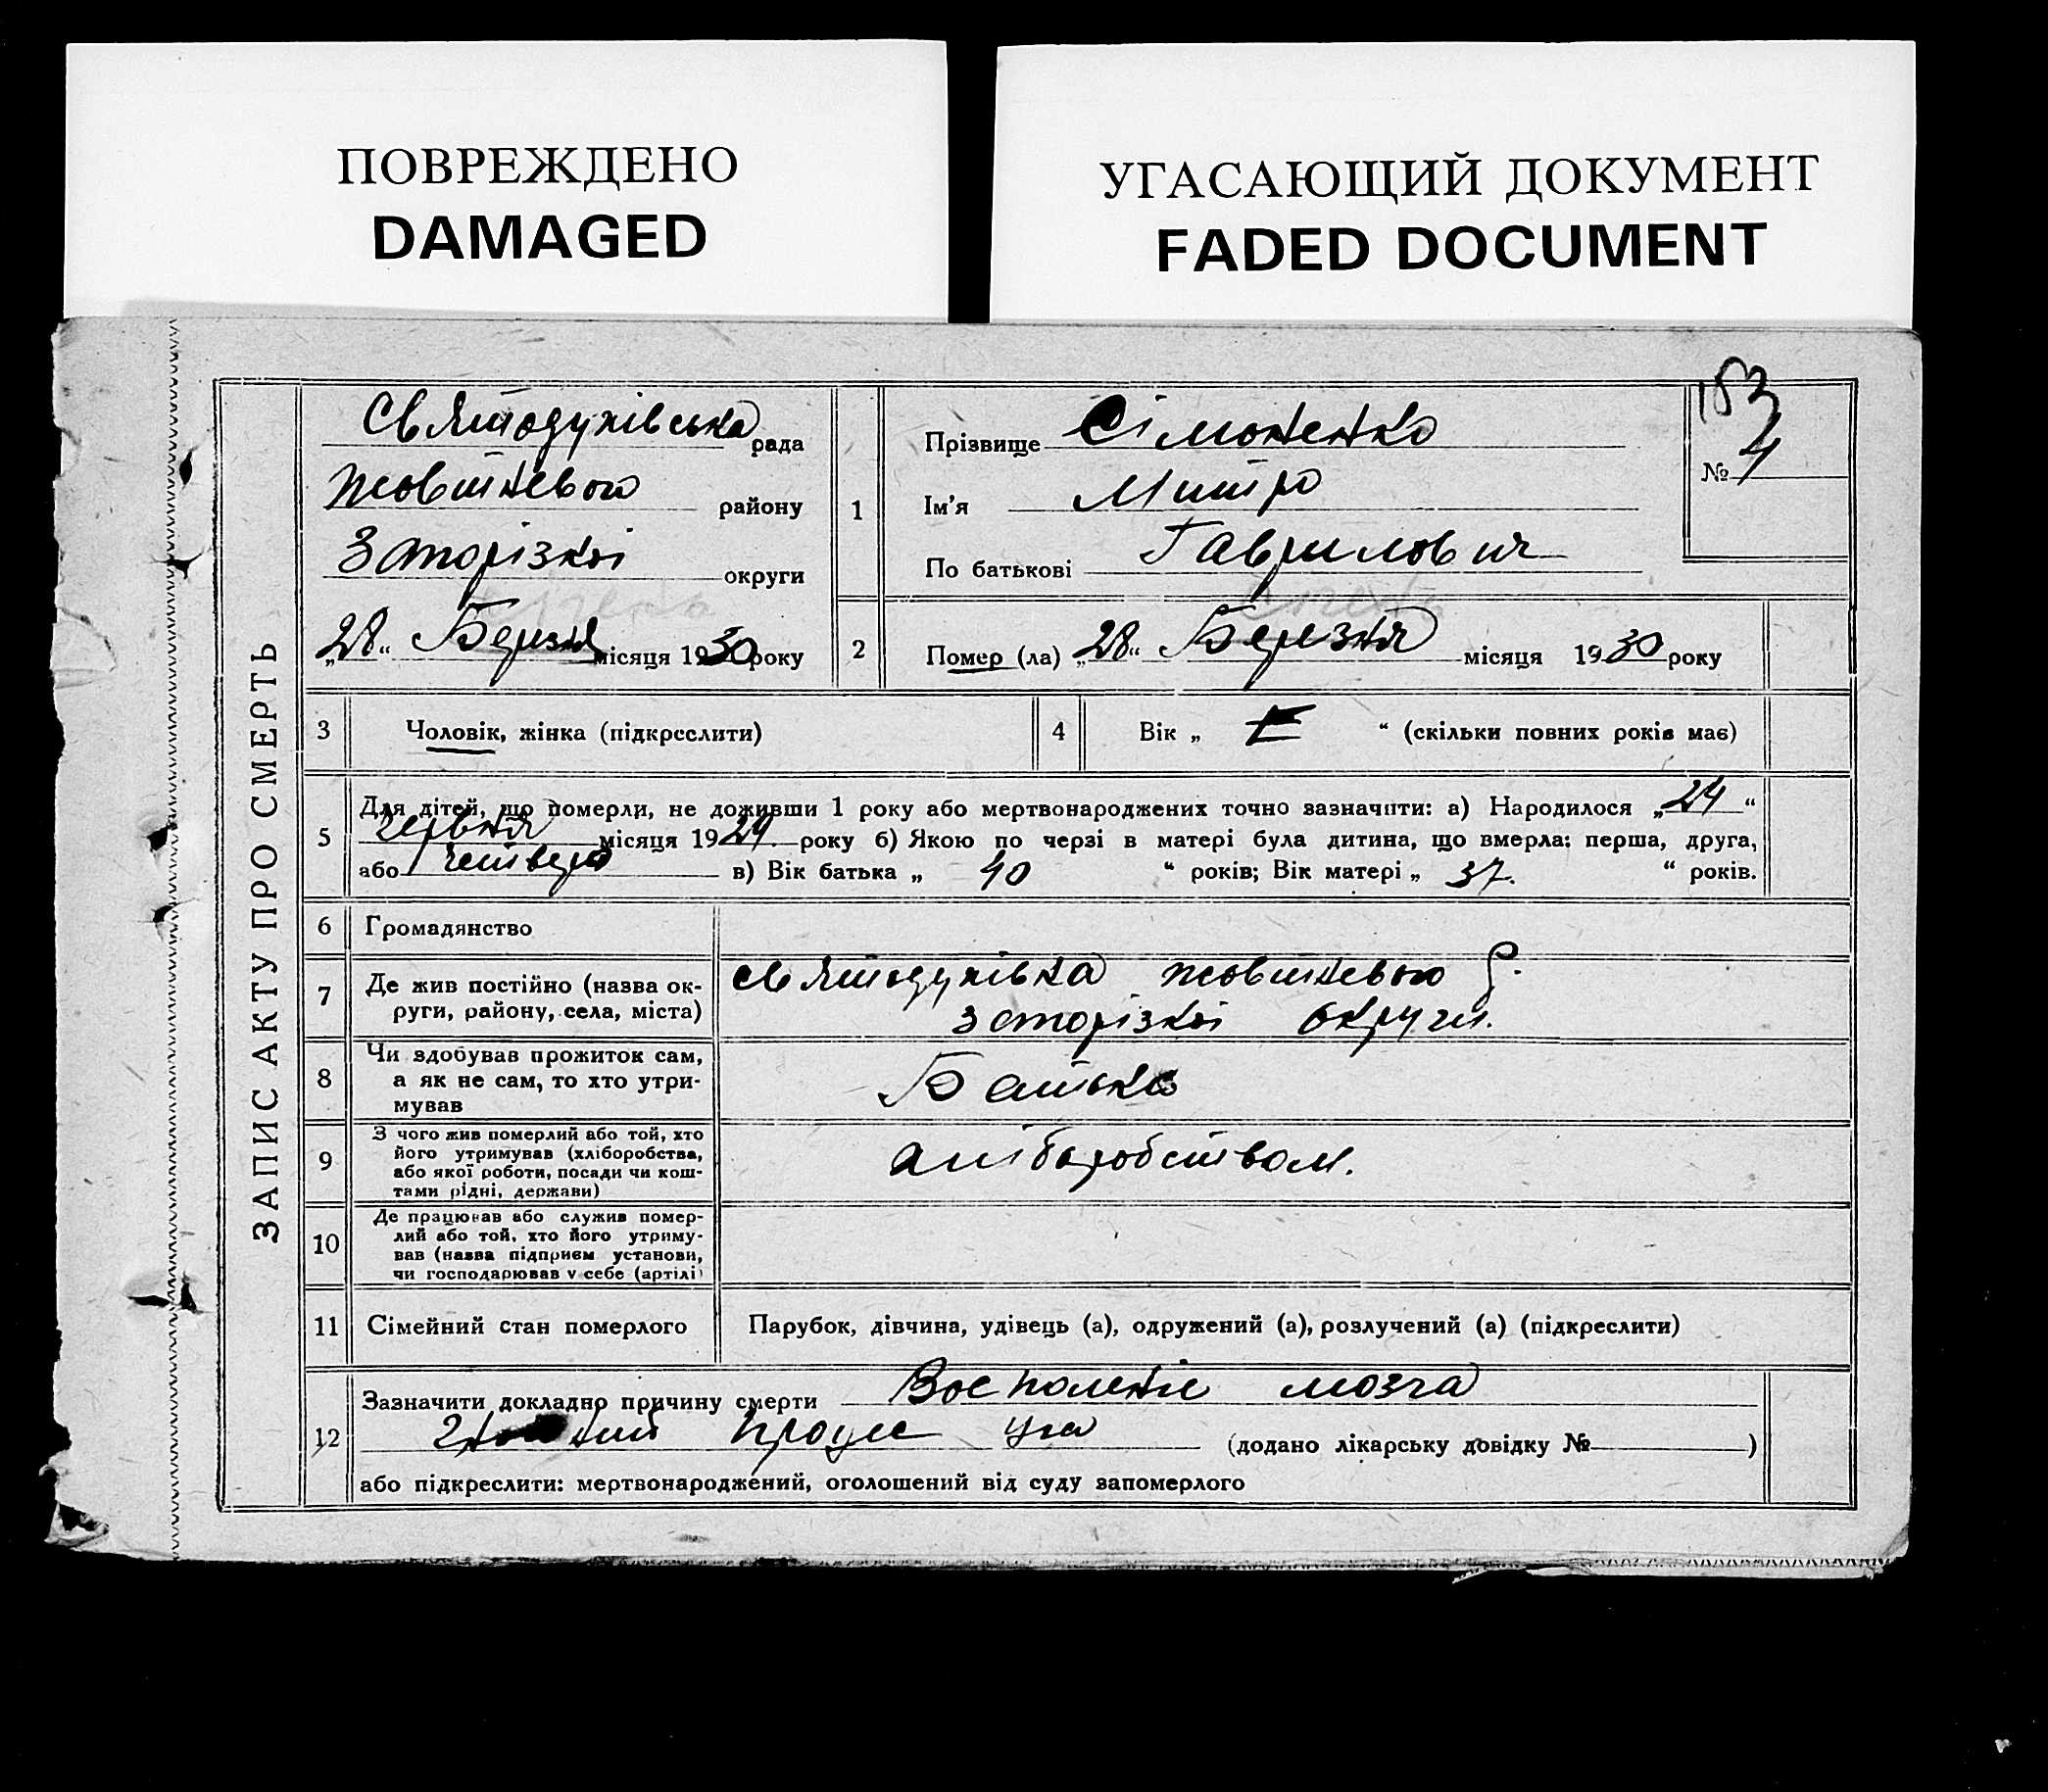 ПОВРЕЖДЕНО
DAMAGED
УГАСАЮЩИЙ ДОКУМЕНТ
FADED DOCUMENT
ЗАПИС АКТУ ПРО СМЕРТЬ
Святодухівська рада
Жовтневого району
Запорізкої округи
„28“ Березня місяця 1930 року
1
Прізвище Сімоненко
Ім'я Митро
По батькові Гаврилович
153
№ 4
2
Помер (ла) „28“ Березня місяця 1930 року
3 Чоловік, жінка (підкреслити)
4 Вік „ “ (скільки повних років має)
5 Для дітей, що померли, не доживши 1 року або мертвонароджених точно зазначити: а) Народилося „24“
червня місяця 1929 року б) Якою по черзі в матері була дитина, що вмерла: перша, друга,
або четверта в) Вік батька „ 40 “ років; Вік матері „ 37. “ років.
6 Громадянство
7 Де жив постійно (назва ок-
руги, району, села, міста)
Святодухівка Жовтневого р.
Запорізкої округи.
8 Чи здобував прожиток сам,
а як не сам, то хто утри-
мував
Батько
9 З чого жив померлий або той, хто
його утримував (хліборобства,
або якої роботи, посади чи кош-
тами рідні, держави)
10 Де працював або служив помер-
лий або той, хто його утриму-
вав (назва підприєм установи,
чи господарював у себе (артілі)
11 Сімейний стан померлого
Парубок, дівчина, удівець (а), одружений (а), розлучений (а) (підкреслити)
12 Зазначити докладно причину смерти Воспаленіе мозга
процес уха (додано лікарську довідку № )
або підкреслити: мертвонароджений, оголошений від суду запомерлого